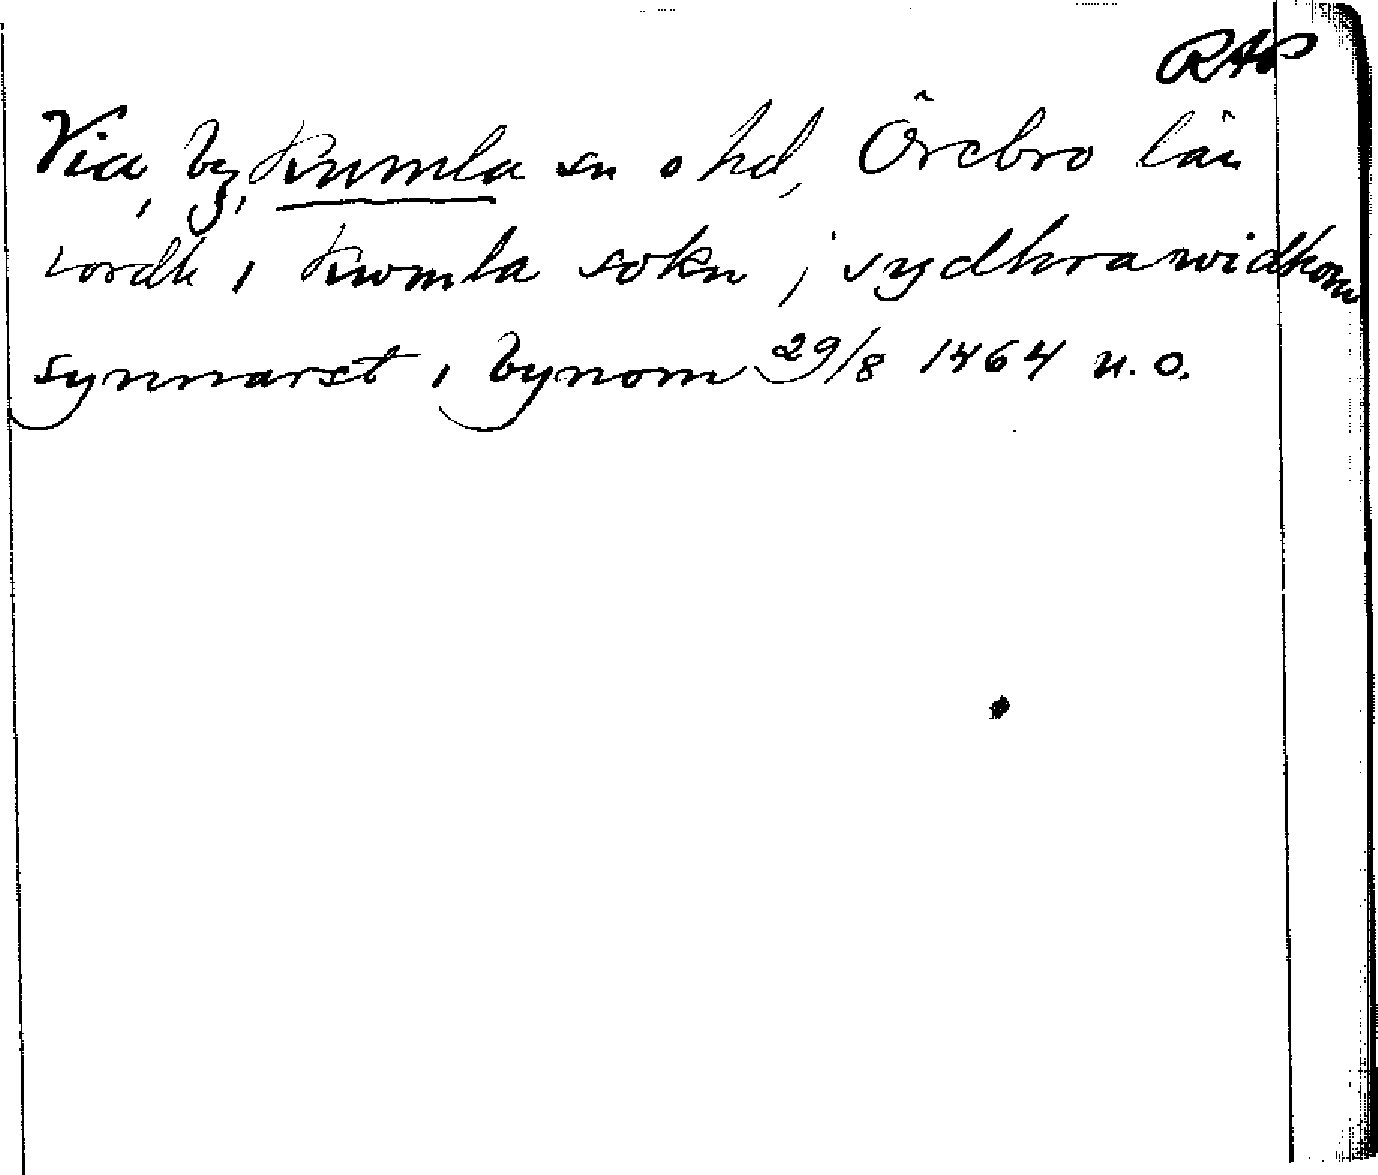 RAP
Via, by, Kumla sn o hd, Örebro län
iordh i Kwmla sokn, i sydhra widhom
synnarst i bynom 29/8 1464 u. o.